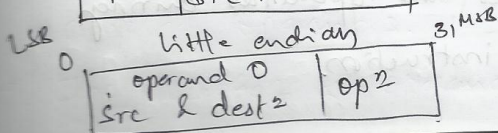 LSB little endian 31 MSB
0
operand 0 | op2
src & dest2